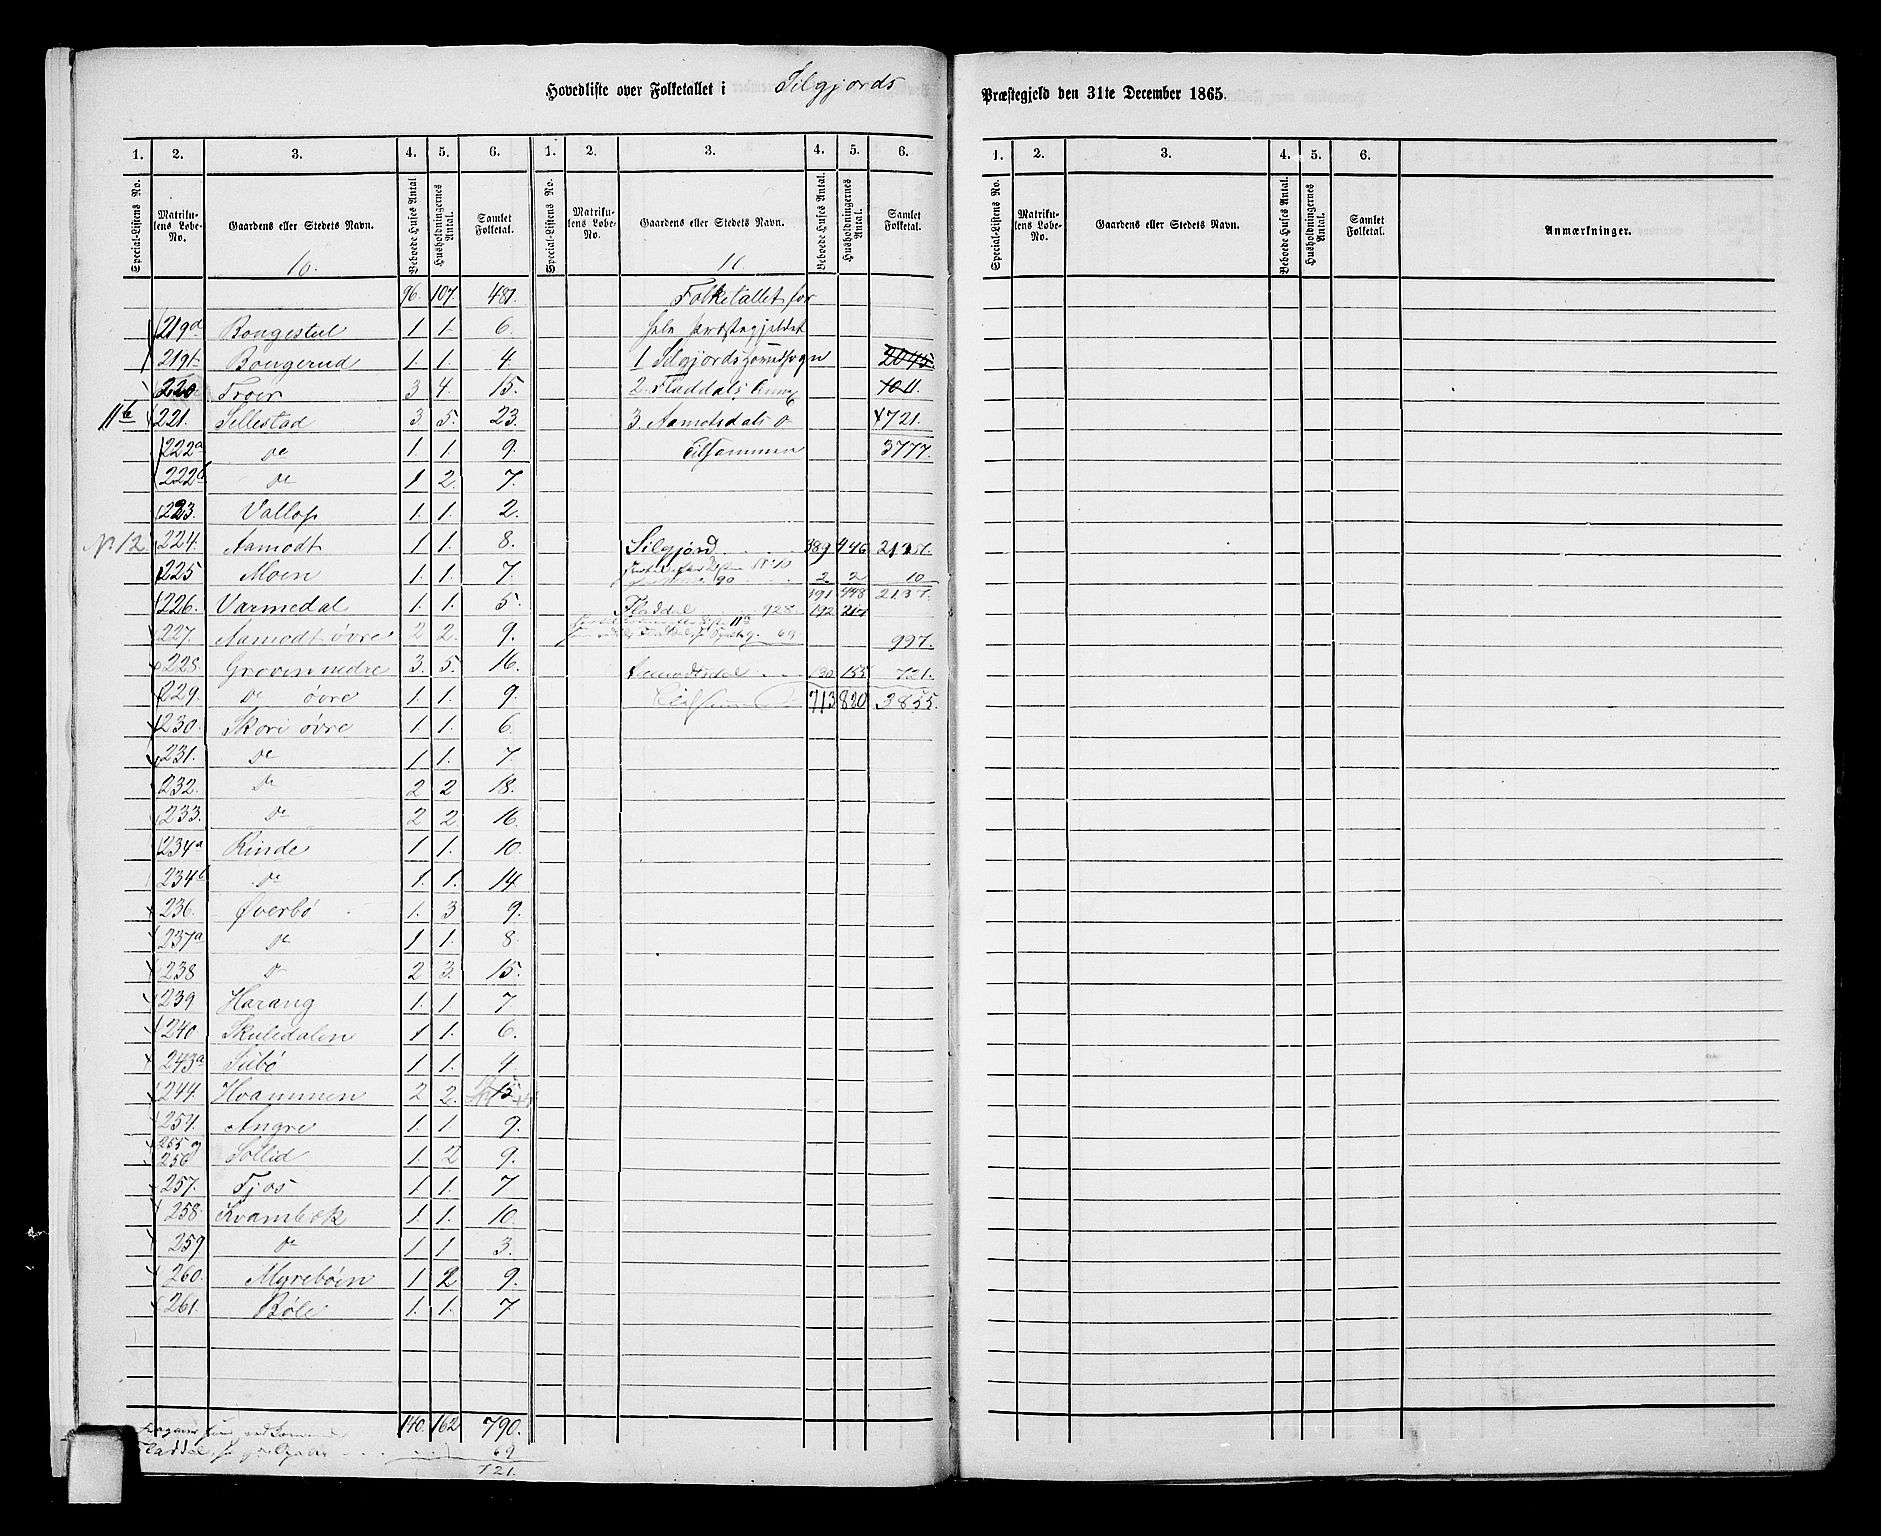 Hovedliste over Folketallet i Silgjords
1. 2. 3. 4. 5. 6. 1. 2. 3. 4. 5. 6.
Special-Listens No. Matrikulens Løbe-No. Gaardens eller Stedets Navn. Beboede Huses Antal Husholdningernes Antal. Samlet Folketal. Special-Listens No. Matrikulens Løbe-No. Gaardens eller Stedets Navn. Beboede Huses Antal. Husholdningernes Antal. Samlet Folketal.
10.
96. 107. 481.
219a Bongestul 1 1. 6.
219b Bongerud 1 1. 4.
220 Froer 3 4. 15.
11b 221. Sillestad 3. 5. 23.
222a do 1 1. 9.
222b do 1 2. 7.
223. Vallop 1. 1. 2.
No 12 224. Aamodt 1 1. 8.
225 Moen 1. 1. 7.
226. Varmedal 1. 1. 5.
227. Aamodt øvre 2 2. 9.
228. Groven nedre 3. 5. 16.
229. do øvre 1. 1. 9.
230. Skori øvre 1. 1. 6.
231. do 1 1. 7
232. do 2 2 18.
233. do 2 2. 16.
234a Rinde 1 1. 10.
234b do 1. 1. 14
236. Øverbø 1. 3 9.
237a do 1 1. 8.
238 do 2 3. 15.
239. Harang 1. 1 7.
240. Skuledalen 1 1. 6.
243a Siibø 1 1. 4.
244. Hvammen 2 2. 15
254. Angre 1. 1. 9.
255 og 256 Sollid 1. 2 9.
257. Fjos 1 1. 7
258. Kvambæk 1. 1. 10.
259 do 1 1. 3.
260. Myrebøen 1 2 9.
261. Bøle 1. 1. 7
140. 162 790.
Fladdal
69
721.
11.
Folketallet for
hele Præstegjeldet
1 Silgjords Hovedsogn 2045.
2. Fladdals Annex 1011.
3. Aamotsdals do 721.
Tilsammen 3777.
Silgjord 389 446 2127.
2 2 10
391 448 2137.
Fladdal 928. 192 217
69
997.
Aamodtsdal 130 155 721.
713 820 3855.
Præstegjeld den 31te December 1865.
1. 2. 3. 4. 5. 6.
Special-Listens No. Matrikulens Løbe-No. Gaardens eller Stedets Navn. Beboede Huses Antal. Husholdningernes Antal. Samlet Folketal. Anmærkninger.